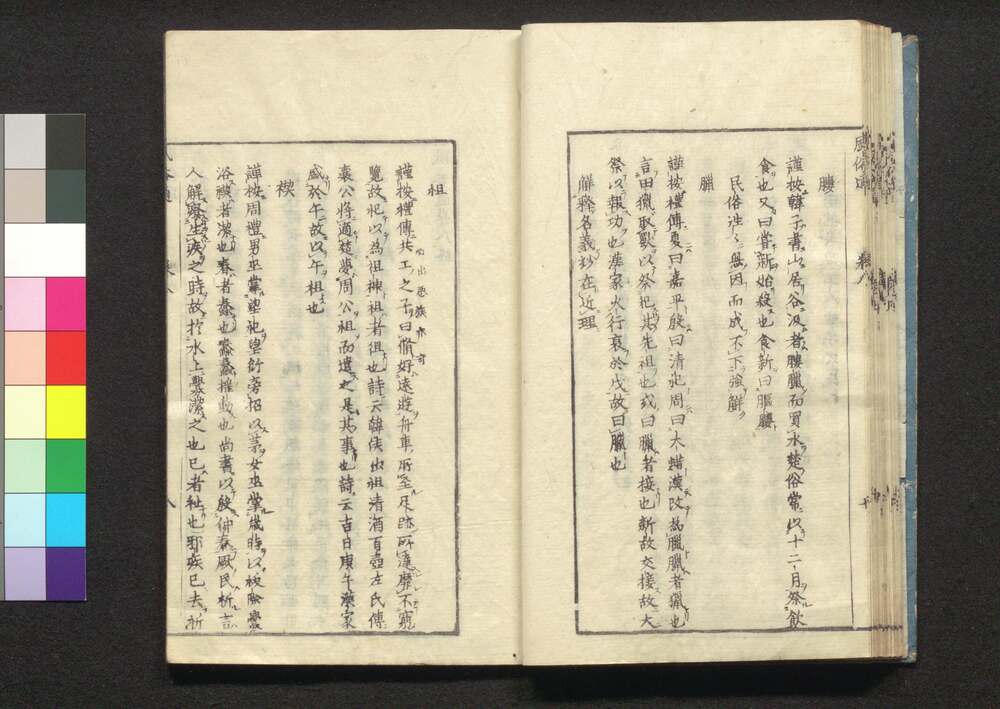 膢
謹按韓子書山居谷汲者膢臘而買水楚俗常以十二月祭飲
食也又曰嘗新始殺也食新曰膢
臘
謹按禮傳夏曰嘉平殷曰清祀周曰大蜡漢改為臘臘者獵也
言田獵取獸以祭祀其先祖也或曰臘者接也新故交接故大
祭以報功也漢家火行衰於戌故曰臘也
祖
謹按禮傳共工之子曰脩好遠遊舟車所至足跡所達靡不窮
覽故祀以為祖神祖者徂也詩云韓侯出祖清酒百壺左氏傳
襄公將適楚夢周公祖而遣之是其事也詩云吉日庚午漢家
盛於午故以午祖也
禊
謹按周禮男巫掌望祀望衍旁招以茅女巫掌歲時以祓除釁
浴禊者潔也春者蠢也蠢蠢搖動也尚書以殷仲春厥民析言
人解療生疾之時故於水上釁潔之也巳者祉也邪疾已去祈